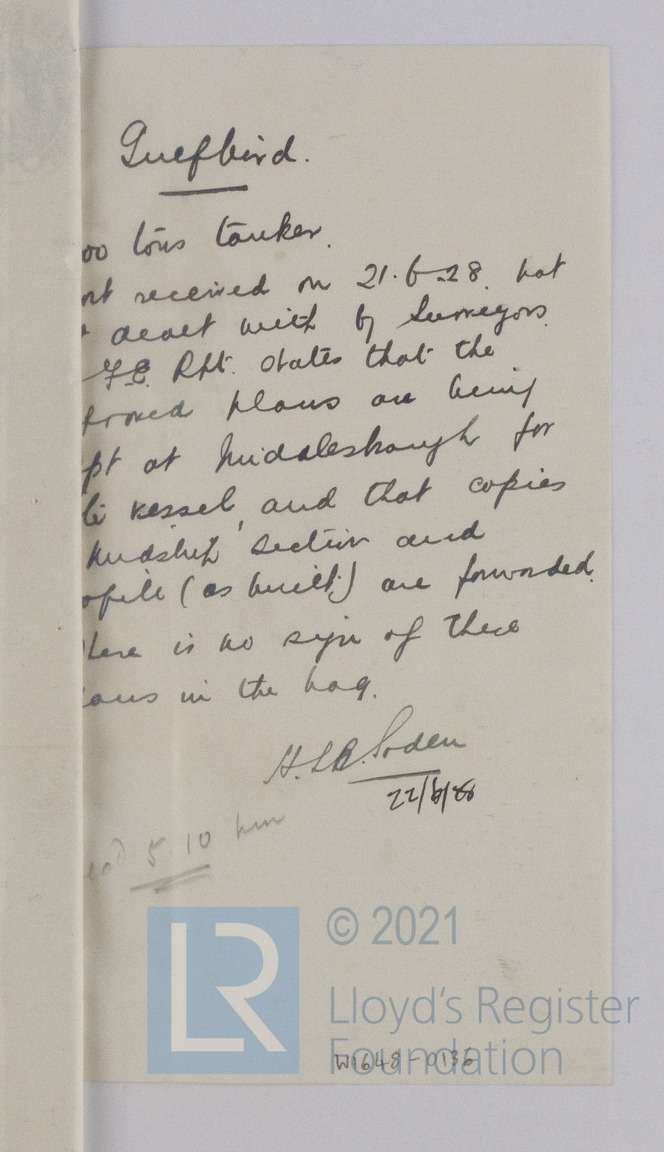 Gulfbird.
00 tons tanker.
received on 21.6.28. not
dealt with by Surveyors.
F.E. Rpt. states that the
proved plans are being
pt at Middlesbrough for
vessel, and that copies
Midship section and
ofile (as built) are forwarded.
here is no sign of these
lans in the bag.
H. Soden
22/6/28
5.10
LR
© 2021
Lloyd's Register
Foundation
W1648-0136